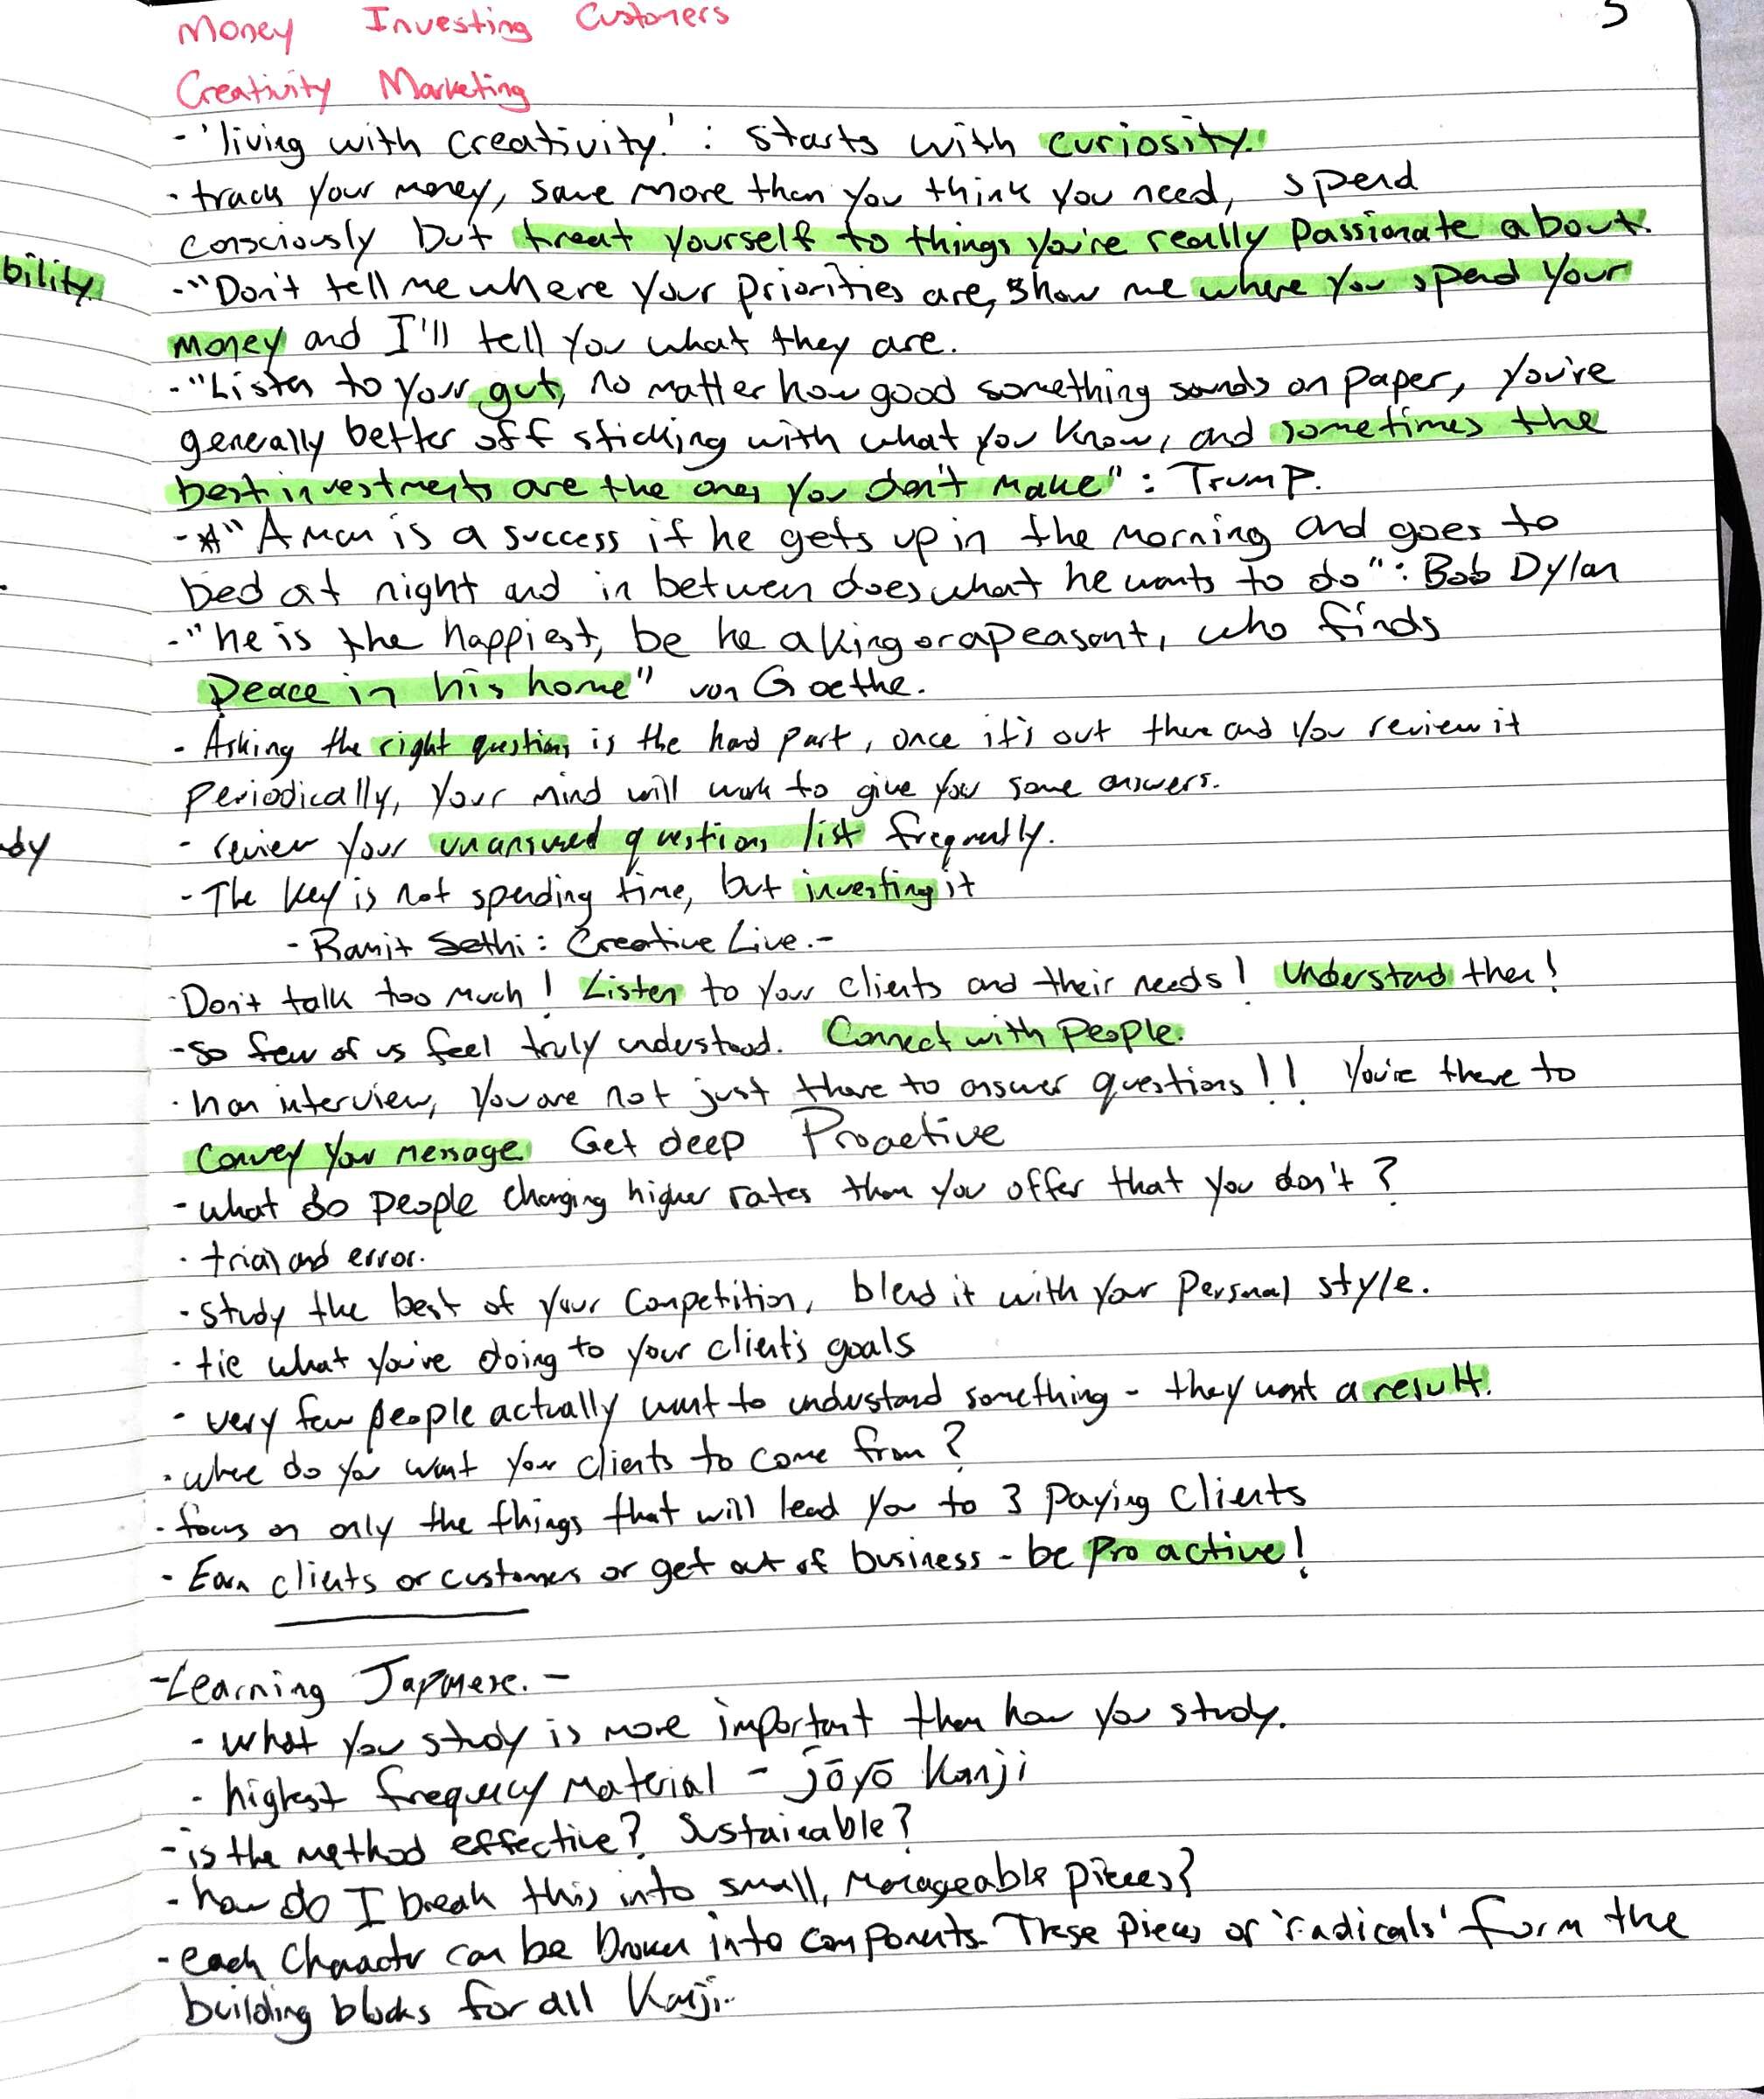 5
Money Investing Customers
Creativity Marketing
- 'living with creativity.' : starts with curiosity.
- track your money, save more than you think you need, spend
consciously but treat yourself to things you're really passionate about.
bility.
- "Don't tell me where your priorities are, show me where you spend your
money and I'll tell you what they are.
- "Listen to your gut, no matter how good something sounds on paper, you're
generally better off sticking with what you know, and sometimes the
best investments are the ones you don't make" : Trump.
- * "A man is a success if he gets up in the morning and goes to
bed at night and in between does what he wants to do" : Bob Dylan
- "he is the happiest, be he a king or a peasant, who finds
peace in his home" von Goethe.
- Asking the right questions is the hard part, once it's out there and you review it
periodically, your mind will work to give you some answers.
dy
- review your unanswered questions list frequently.
- The key is not spending time, but investing it
- Ramit Sethi : Creative Live. -
- Don't talk too much! Listen to your clients and their needs! Understand them!
- so few of us feel truly understood. Connect with people.
- In an interview, you are not just there to answer questions!! You're there to
convey your message. Get deep Proactive
- what do people charging higher rates than you offer that you don't?
- trial and error.
- study the best of your competition, blend it with your personal style.
- tie what you're doing to your client's goals
- very few people actually want to understand something - they want a result.
- where do you want your clients to come from?
- focus on only the things that will lead you to 3 paying clients
- Earn clients or customers or get out of business - be proactive!
- Learning Japanese. -
- what you study is more important than how you study.
- highest frequency material - jōyō Kanji
- is the method effective? Sustainable?
- how do I break this into small, manageable pieces?
- each character can be broken into components. These pieces or 'radicals' form the
building blocks for all Kanji.